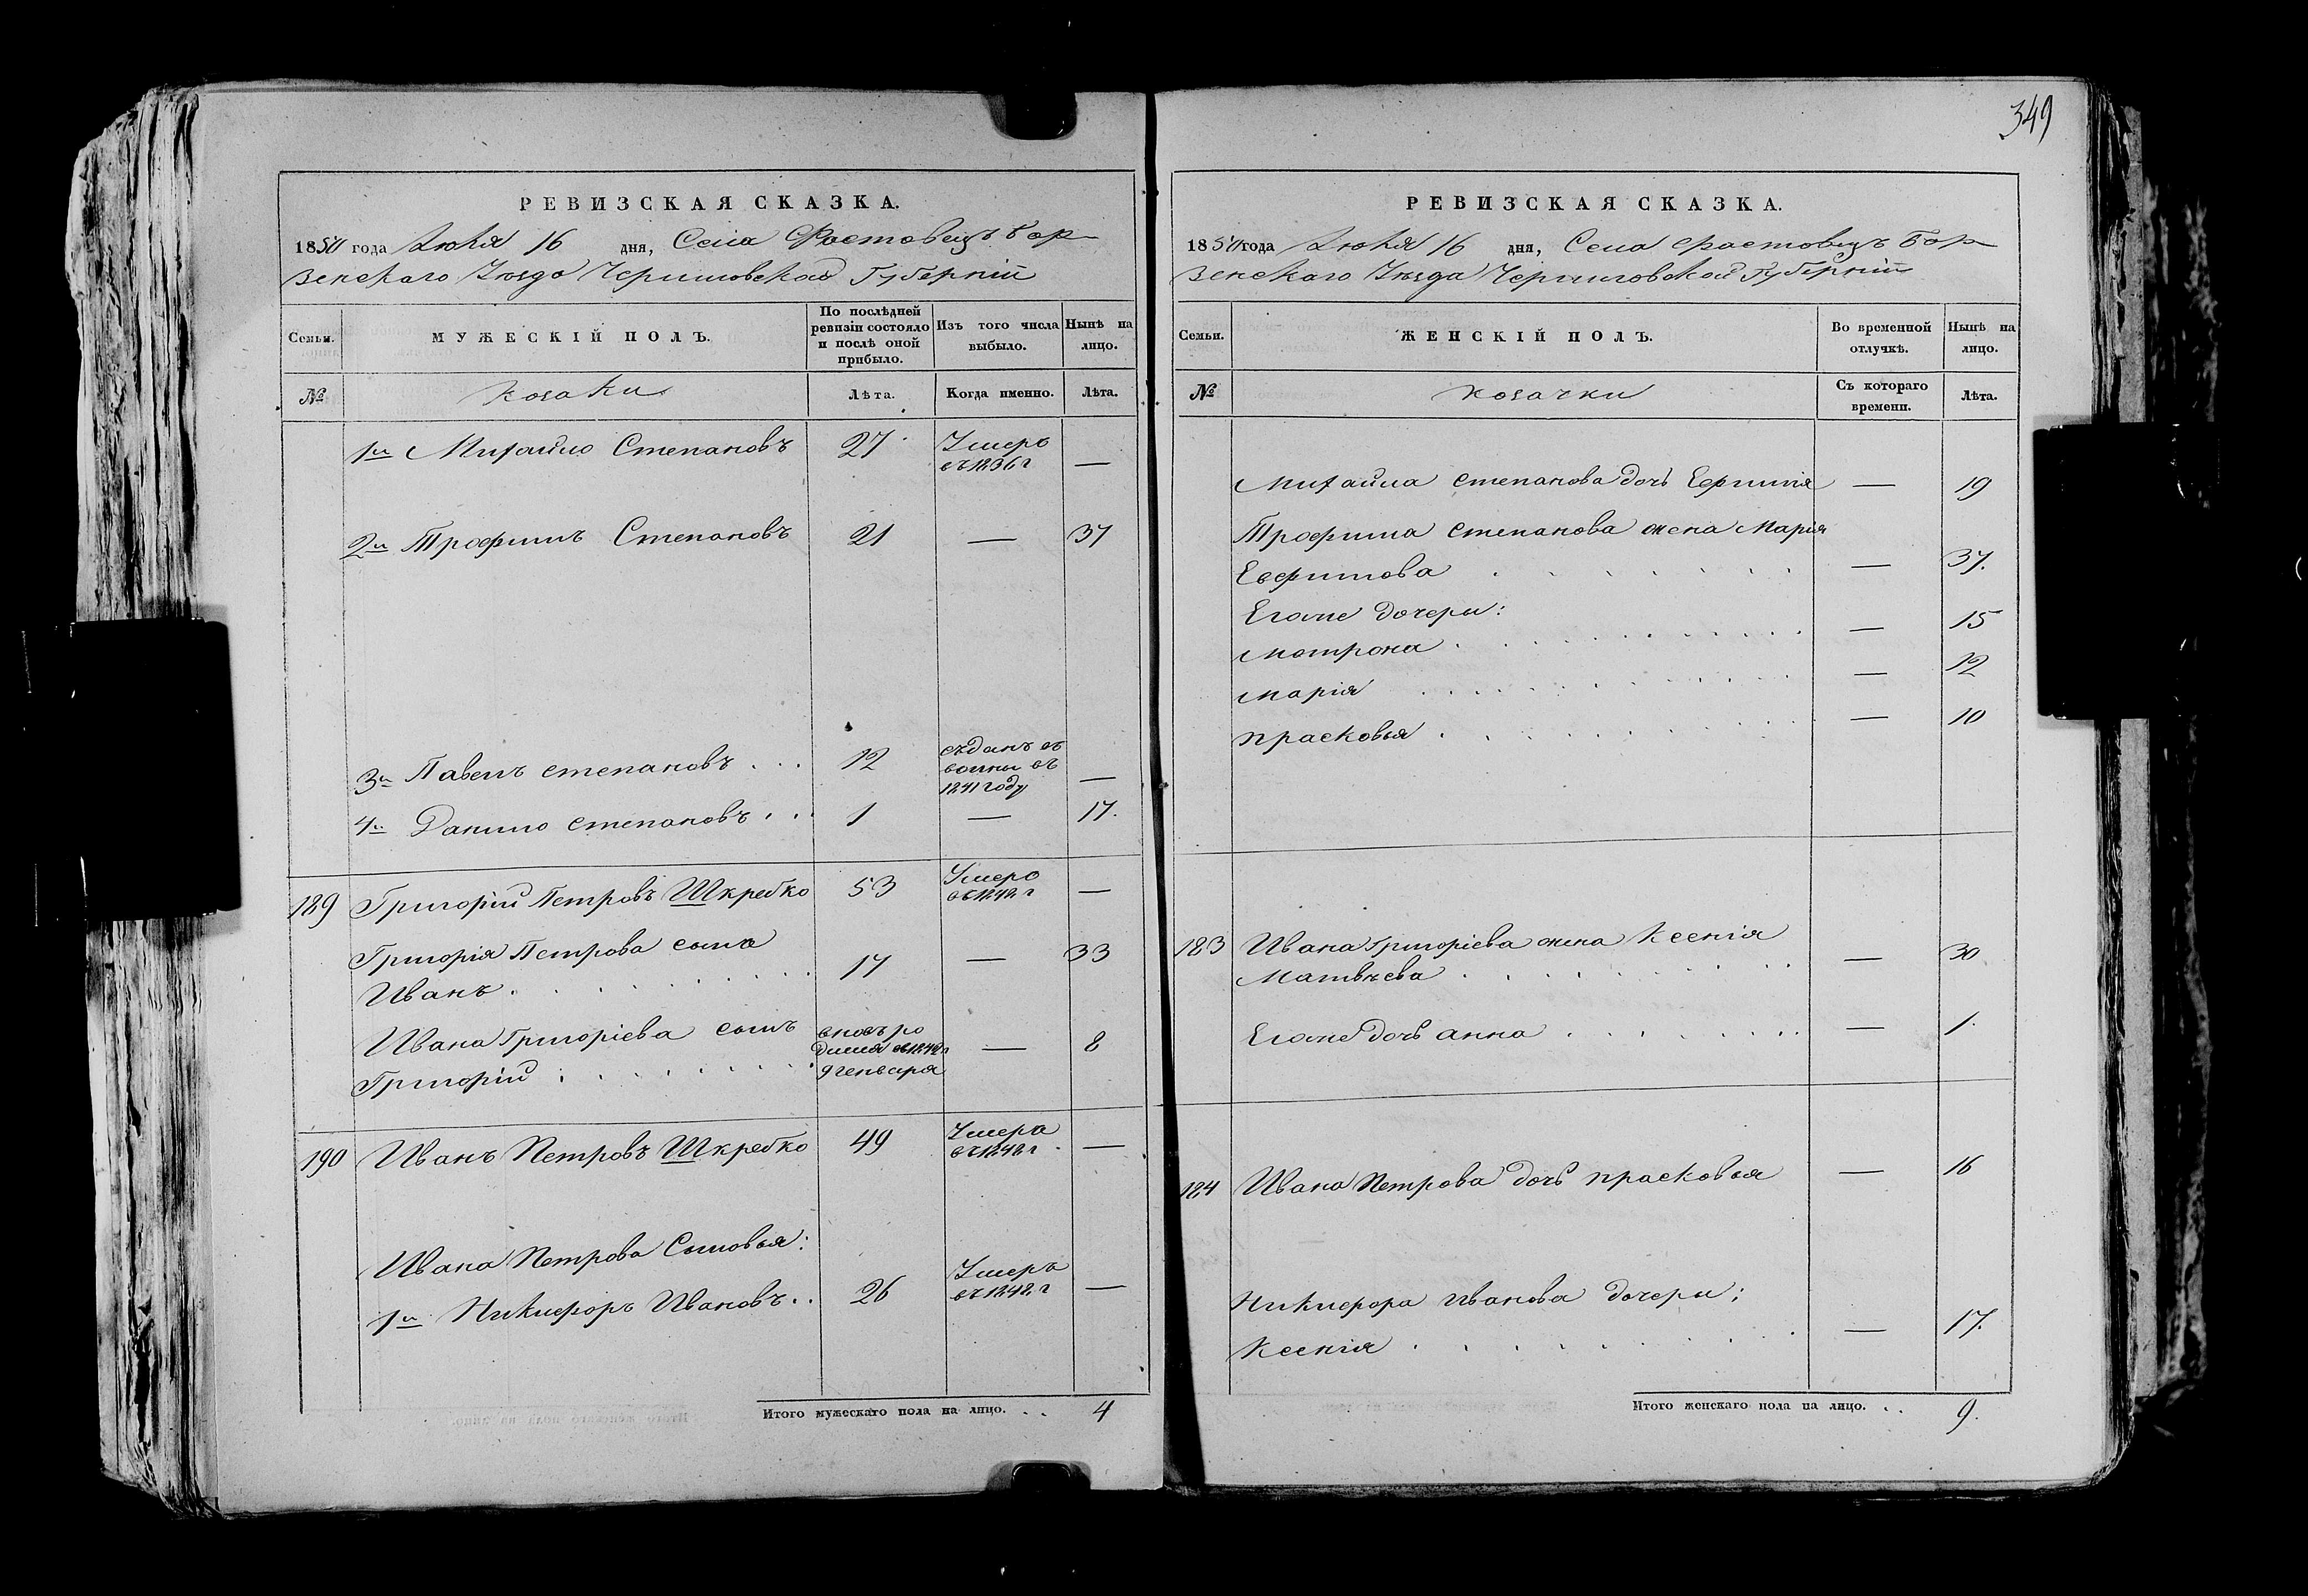 349
РЕВИЗСКАЯ СКАЗКА.
1850 года Июля 16 дня, Села Фастовецъ Бор-
зенскаго Уѣзда Черниговской Губерніи
Семьи. МУЖЕСКІЙ ПОЛЪ. По послѣдней ревизіи состояло и послѣ оной прибыло. Изъ того числа выбыло. Нынѣ на лицо.
№ Козаки Лѣта. Когда именно. Лѣта.
1й Михайло Степановъ 27 Умеръ въ 1836 г —
2й Трофимъ Степановъ 21 — 37
3й Павелъ Степановъ . . . 12 въ 1841 году —
4й Данило Степановъ . . . 1 — 17.
189 Григорій Петровъ Шкребко 53 Умеръ въ 1842 г —
Григорія Петрова сынъ
Иванъ . . . . . . . 17 — 33
Ивана Григоріева сынъ вновь ро
Григорій . . . . . . . дился въ 1842 г 9 генваря — 8
190 Иванъ Петровъ Шкребко 49 Умеръ въ 1848 г —
Ивана Петрова Сыновья:
1й Никифоръ Ивановъ . . 26 Умеръ въ 1848 г —
Итого мужескаго пола на лицо. . . 4
РЕВИЗСКАЯ СКАЗКА.
1850 года Июля 16 дня, Села Фастовецъ Бор-
зенскаго Уѣзда Черниговской Губерніи
Семьи. ЖЕНСКІЙ ПОЛЪ. Во временной отлучкѣ. Нынѣ на лицо.
№ Козачки Съ котораго времени. Лѣта.
Михайла Степанова дочь — 19
Трофима Степанова жена Марія
Евфимова . . . . . . . — 37.
Егоже дочери:
Мотрона . . . . . . . — 15
Марія . . . . . . . — 12
Прасковья . . . . . . . — 10
183 Ивана Григоріева жена Ксенія
Матвѣева . . . . . . . — 30
Егоже дочь Анна . . . . . . — 1.
184 Ивана Петрова дочь Прасковья — 16
Никифора Иванова дочери:
Ксенія . . . . . . . — 17.
Итого женскаго пола на лицо. . . 9.